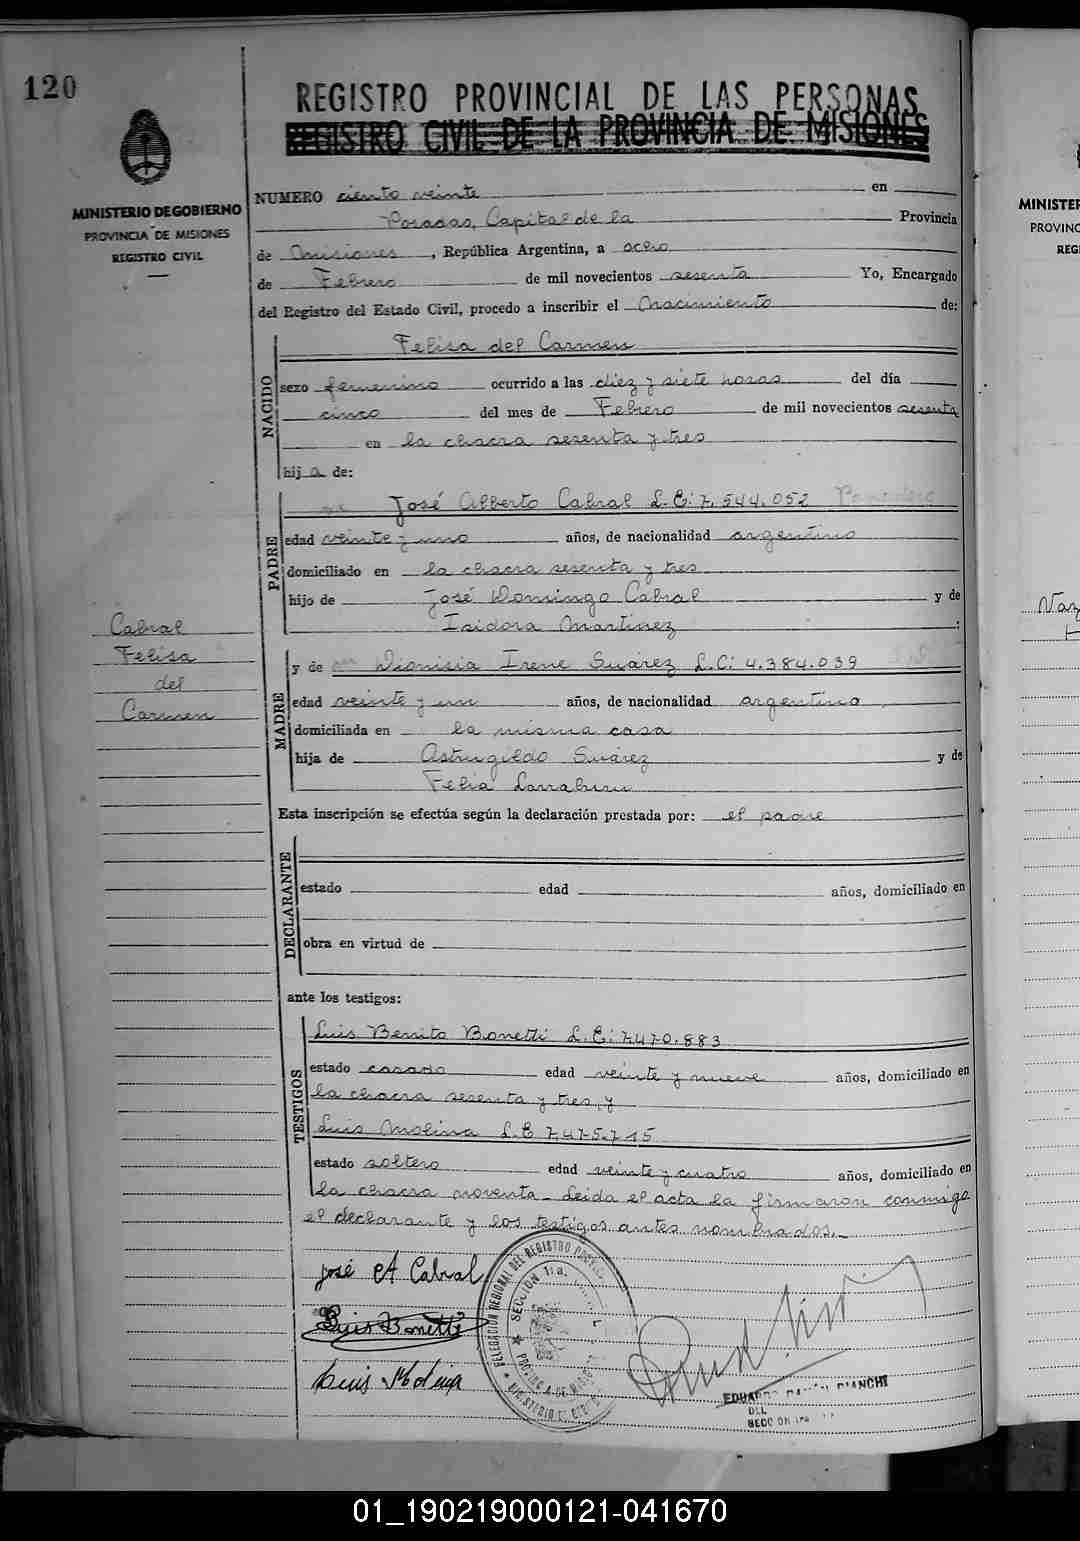 120
REGISTRO PROVINCIAL DE LAS PERSONAS
REGISTRO CIVIL DE LA PROVINCIA DE MISIONES
MINISTERIO DE GOBIERNO
PROVINCIA DE MISIONES
REGISTRO CIVIL
NUMERO ciento veinte en
Posadas, Capital de la Provincia
de Misiones, República Argentina, a ocho
de Febrero de mil novecientos sesenta Yo, Encargado
del Registro del Estado Civil, procedo a inscribir el Nacimiento de:
NACIDO
Felisa del Carmen
sexo femenino ocurrido a las diez y siete horas del día
cinco del mes de Febrero de mil novecientos sesenta
en la chacra sesenta y tres
hij a de:
PADRE
José Alberto Cabral L.E: 7.544.052
edad veinte y uno años, de nacionalidad argentino
domiciliado en la chacra sesenta y tres
hijo de José Domingo Cabral y de
Isidora Martínez :
MADRE
y de Dionisia Irene Suárez L.C: 4.384.039
edad veinte y un años, de nacionalidad argentino
domiciliada en la misma casa
hija de Astrugildo Suárez y de
Felia
Cabral
Felisa
del
Carmen
Esta inscripción se efectúa según la declaración prestada por: el padre
DECLARANTE
estado edad años, domiciliado en
obra en virtud de
ante los testigos:
TESTIGOS
Luis Benito Bonetti L.E: 7.470.883
estado casado edad veinte y nueve años, domiciliado en
la chacra sesenta y tres, y
Luis Molina L.E 7.475.715
estado soltero edad veinte y cuatro años, domiciliado en
la chacra noventa - Leida el acta la firmaron conmigo
el declarante y los testigos antes nombrados.-
José A Cabral
Luis Bonetti
Luis Molina
DELEGACIÓN REGIONAL DEL REGISTRO
SECCIÓN 1ra.
EDUARDO RAMÓN BIANCHI
DEL
SECCION 1ra
MINISTER
PROVINC
REGI
Vaz
01_190219000121-041670